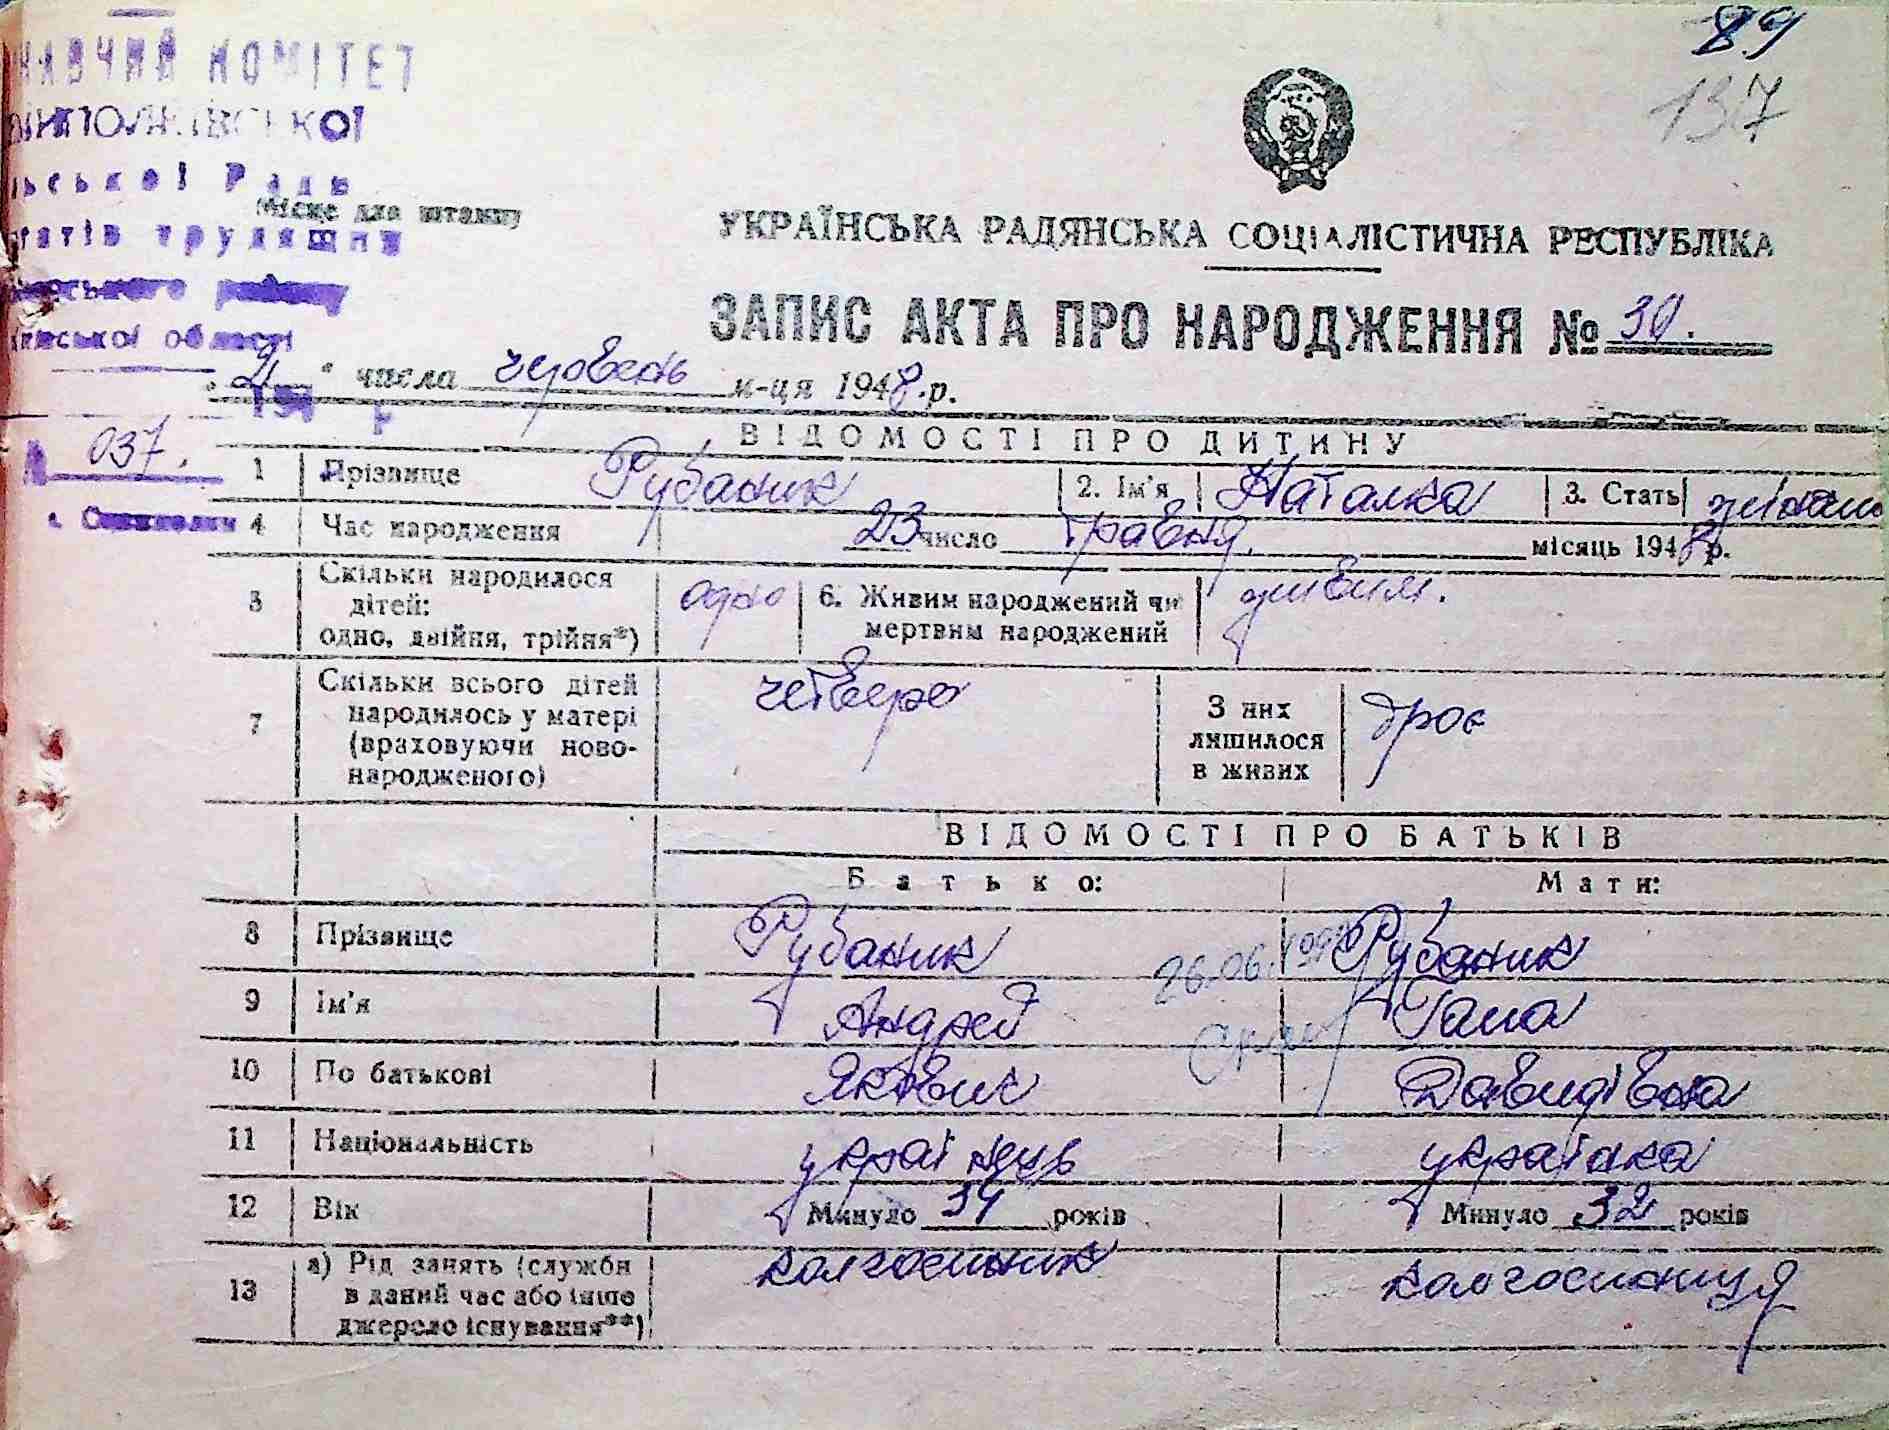 89
137
НАВЧИЙ КОМІТЕТ
ської Рад
татів трудящих
району
ської області
Місце для штампу
194 р
037.
УКРАЇНСЬКА РАДЯНСЬКА СОЦІАЛІСТИЧНА РЕСПУБЛІКА
ЗАПИС АКТА ПРО НАРОДЖЕННЯ № 30.
„2“ числа червень м-ця 1948.р.
ВІДОМОСТІ ПРО ДИТИНУ
1 Прізвище Рубаник 2. Ім'я Наталка 3. Стать
4 Час народження 23 число травня. місяць 1948 р.
5 Скільки народилося дітей: одно, двійня, трійня*) одно 6. Живим народжений чи мертвим народжений живим.
7 Скільки всього дітей народилось у матері (враховуючи ново-народженого) четверо З них лишилося в живих троє
ВІДОМОСТІ ПРО БАТЬКІВ
Батько: Мати:
8 Прізвище Рубаник 26.06. Рубаник
9 Ім'я Андрей Гана
10 По батькові Якович Давидівна
11 Національність українець українка
12 Вік Минуло 34 років Минуло 32 років
13 а) Рід занять (служби в даний час або інше джерело існування**) колгоспник колгоспниця